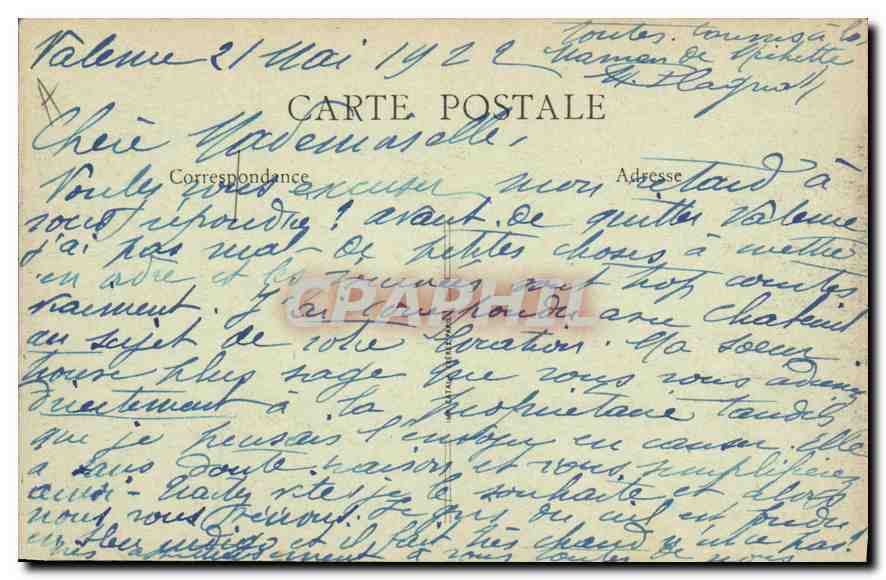 Valence 21 Mai 1922
toutes. à la
Maman de Michette
CARTE POSTALE
Chère Mademoiselle,
Correspondance
Adresse
Voulez vous excuser mon retard à
vous répondre ? avant de quitter Valence
j'ai pas mal de petites choses à mettre
en ordre et les journées sont trop courtes
vraiment. J'ai correspondu avec
au sujet de votre location. Ma soeur
trouve plus sage que vous vous
directement à la propriétaire tandis
que je pensais en causer. Elle
a sans doute raison et vous
ainsi - vites je le souhaite et alors
nous vous du ciel
et il fait très chaud n'est ce pas !
à vous toutes de nous
CPAPHIL